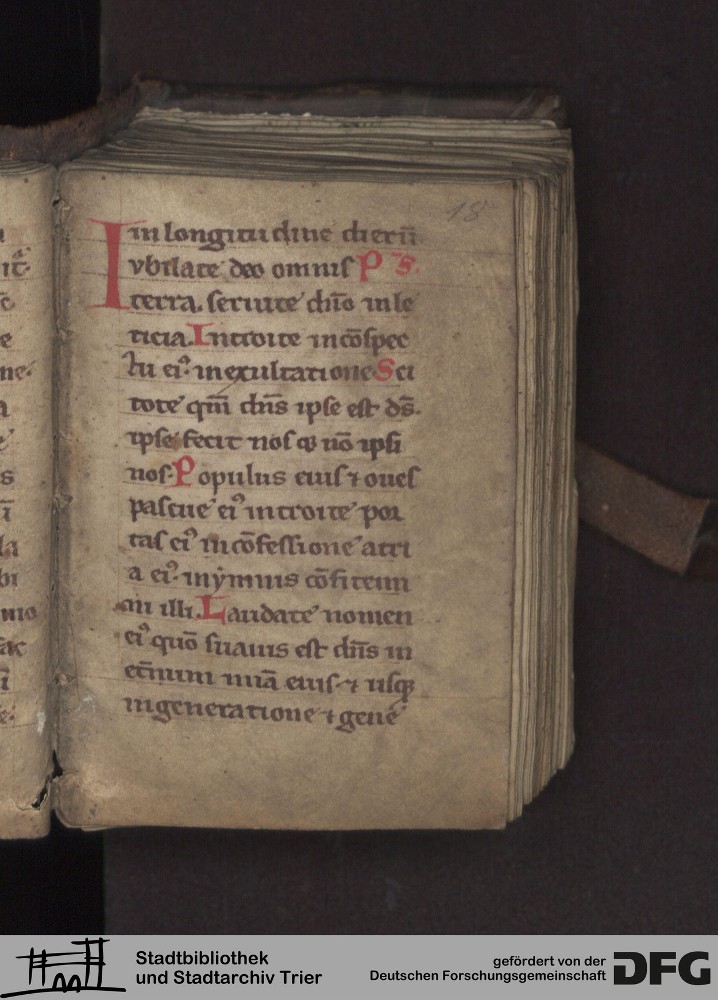 18
in longitudine dierū
Iubilate deo omnis Ps.
terra. seruite dn̄o in le
ticia. Introite in cōspec
tu ei⁹. in exultatione Sci
tote qm̄ dn̄s ipse est ds̄.
ipse fecit nos ⁊ nō ipsi
nos. Populus eius ⁊ oues
pascue ei⁹ introite por
tas ei⁹ in cōfessione atri
a ei⁹. in ymnis cōfitemi
ni illi. Laudate nomen
ei⁹ quō suauis est dn̄s in
et̄num mīa eius. ⁊ usq̨
in generatione ⁊ gene
Stadtbibliothek
und Stadtarchiv Trier
gefördert von der
Deutschen Forschungsgemeinschaft
DFG